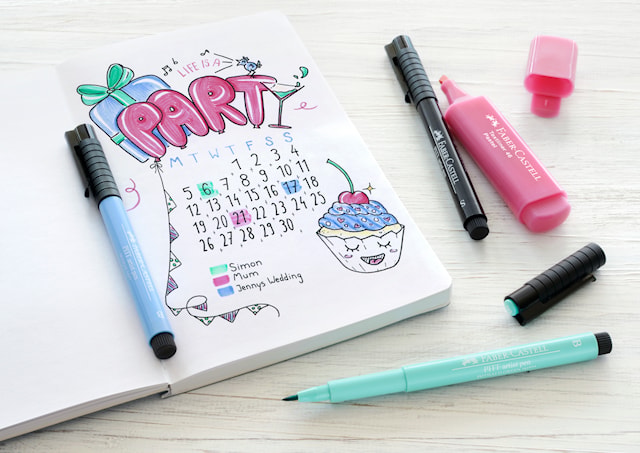 LIFE IS A
PARTY
M T W T F S S
1 2 3 4
5 6 7 8 9 10 11
12 13 14 15 16 17 18
19 20 21 22 23 24 25
26 27 28 29 30
Simon
Mum
Jennys Wedding
PITT artist pen
B
FABER-CASTELL
S
FABER-CASTELL
Textliner 46
Pastel
FABER-CASTELL
PITT artist pen
B